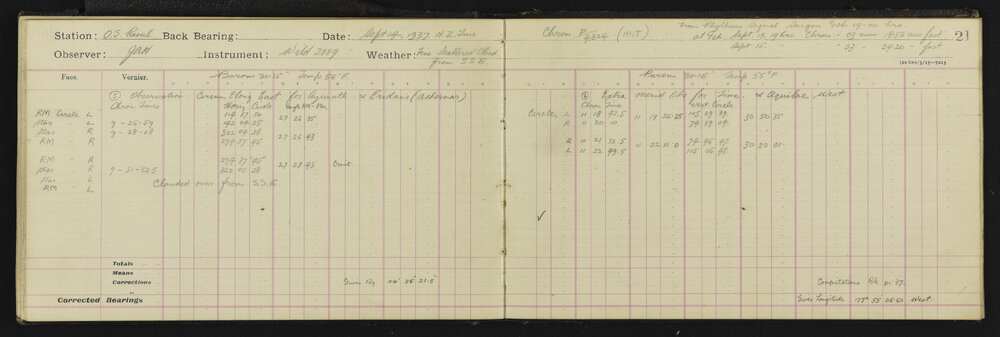 Station: O.S. Raoul Back Bearing: Date: Sept 14. 1937 N.Z. Time
Observer: JAH Instrument: Wild 2889 Weather: Fine Scattered Cloud
from S.S.E.
Face. Vernier. Barom 30.15" Temp 56°F.
Observation: Circum Elong East for Azimuth α Eridani (Achernar)
Chron Times Horiz Circle
RM Circle L 114 37 50
Star L 9-26-59 142 04 25 27 26 35
Star R 9-28-08 322 04 28 27 26 43
RM R 294 37 45
RM R 294 37 45
Star R 9-31-42.5 322 05 28 27 27 43 Omit
Star L Clouded over from S.S.E.
RM L
Totals
Means
Corrections
Gives Bg 114° 36' 21.5"
Corrected Bearings
Chron (M.T)
From Rhythmic Signal Saigon Gch 19-00 hrs
at Gch. Sept. 13. 19 hrs. Chron - 03 mins 18.56 secs fast
Sept 15. " 03 - 24.20 - fast
21
Barom 30.15" Temp 55°F
Extra Merid Obs for Time. α Aquilae West
Chron Time Vert Circle
Circle L 11 18 42.5 11 19 26.25 105 29 39 30 50 35
R 11 20 10. 74 39 04
R 11 21 32.5 11 22 11.0 74 46 47 30 20 01
L 11 22 49.5 105 06 48
✓
Computations Bk pr 37.
Gives Longitude 177° 55 06.50 West